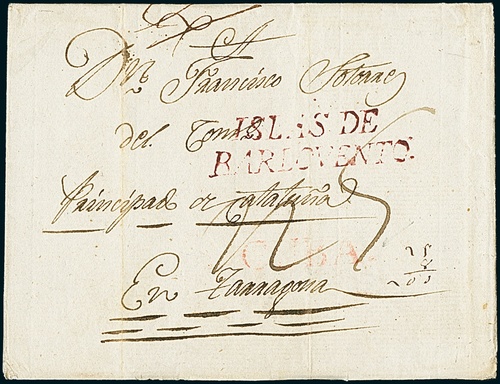 A
Dn. Francisco
del Comer
ISLAS DE
BARLOVENTO.
Principad de Cataluña
CUBA
En Tarragona